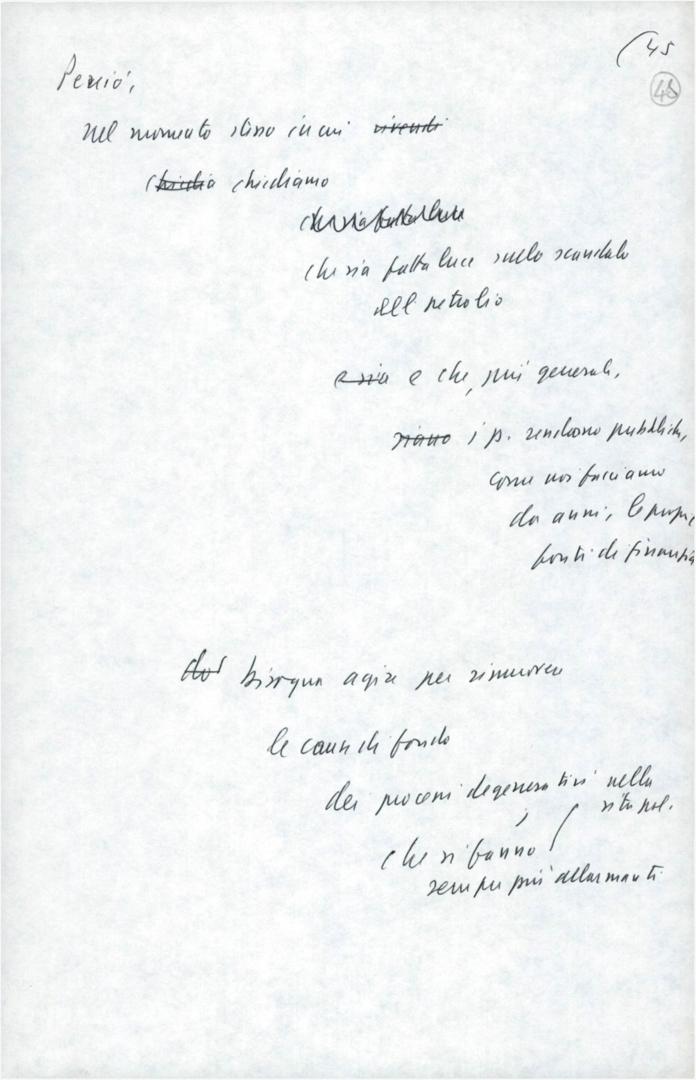 (45
45
Perciò,
nel momento stesso in cui rivendi
Chiedia chiediamo
che sia fatta luce
che sia fatta luce sullo scandalo
del petrolio
e sia e che, più generali,
siano i p. rendano pubblich,
come noi facciamo
da anni, le propri
fonti di finanzia
bisogna agire per rimuovere
le cause di fondo
dei processi degenerativi nella
vita pol.
che si fanno
sempre più allarmanti